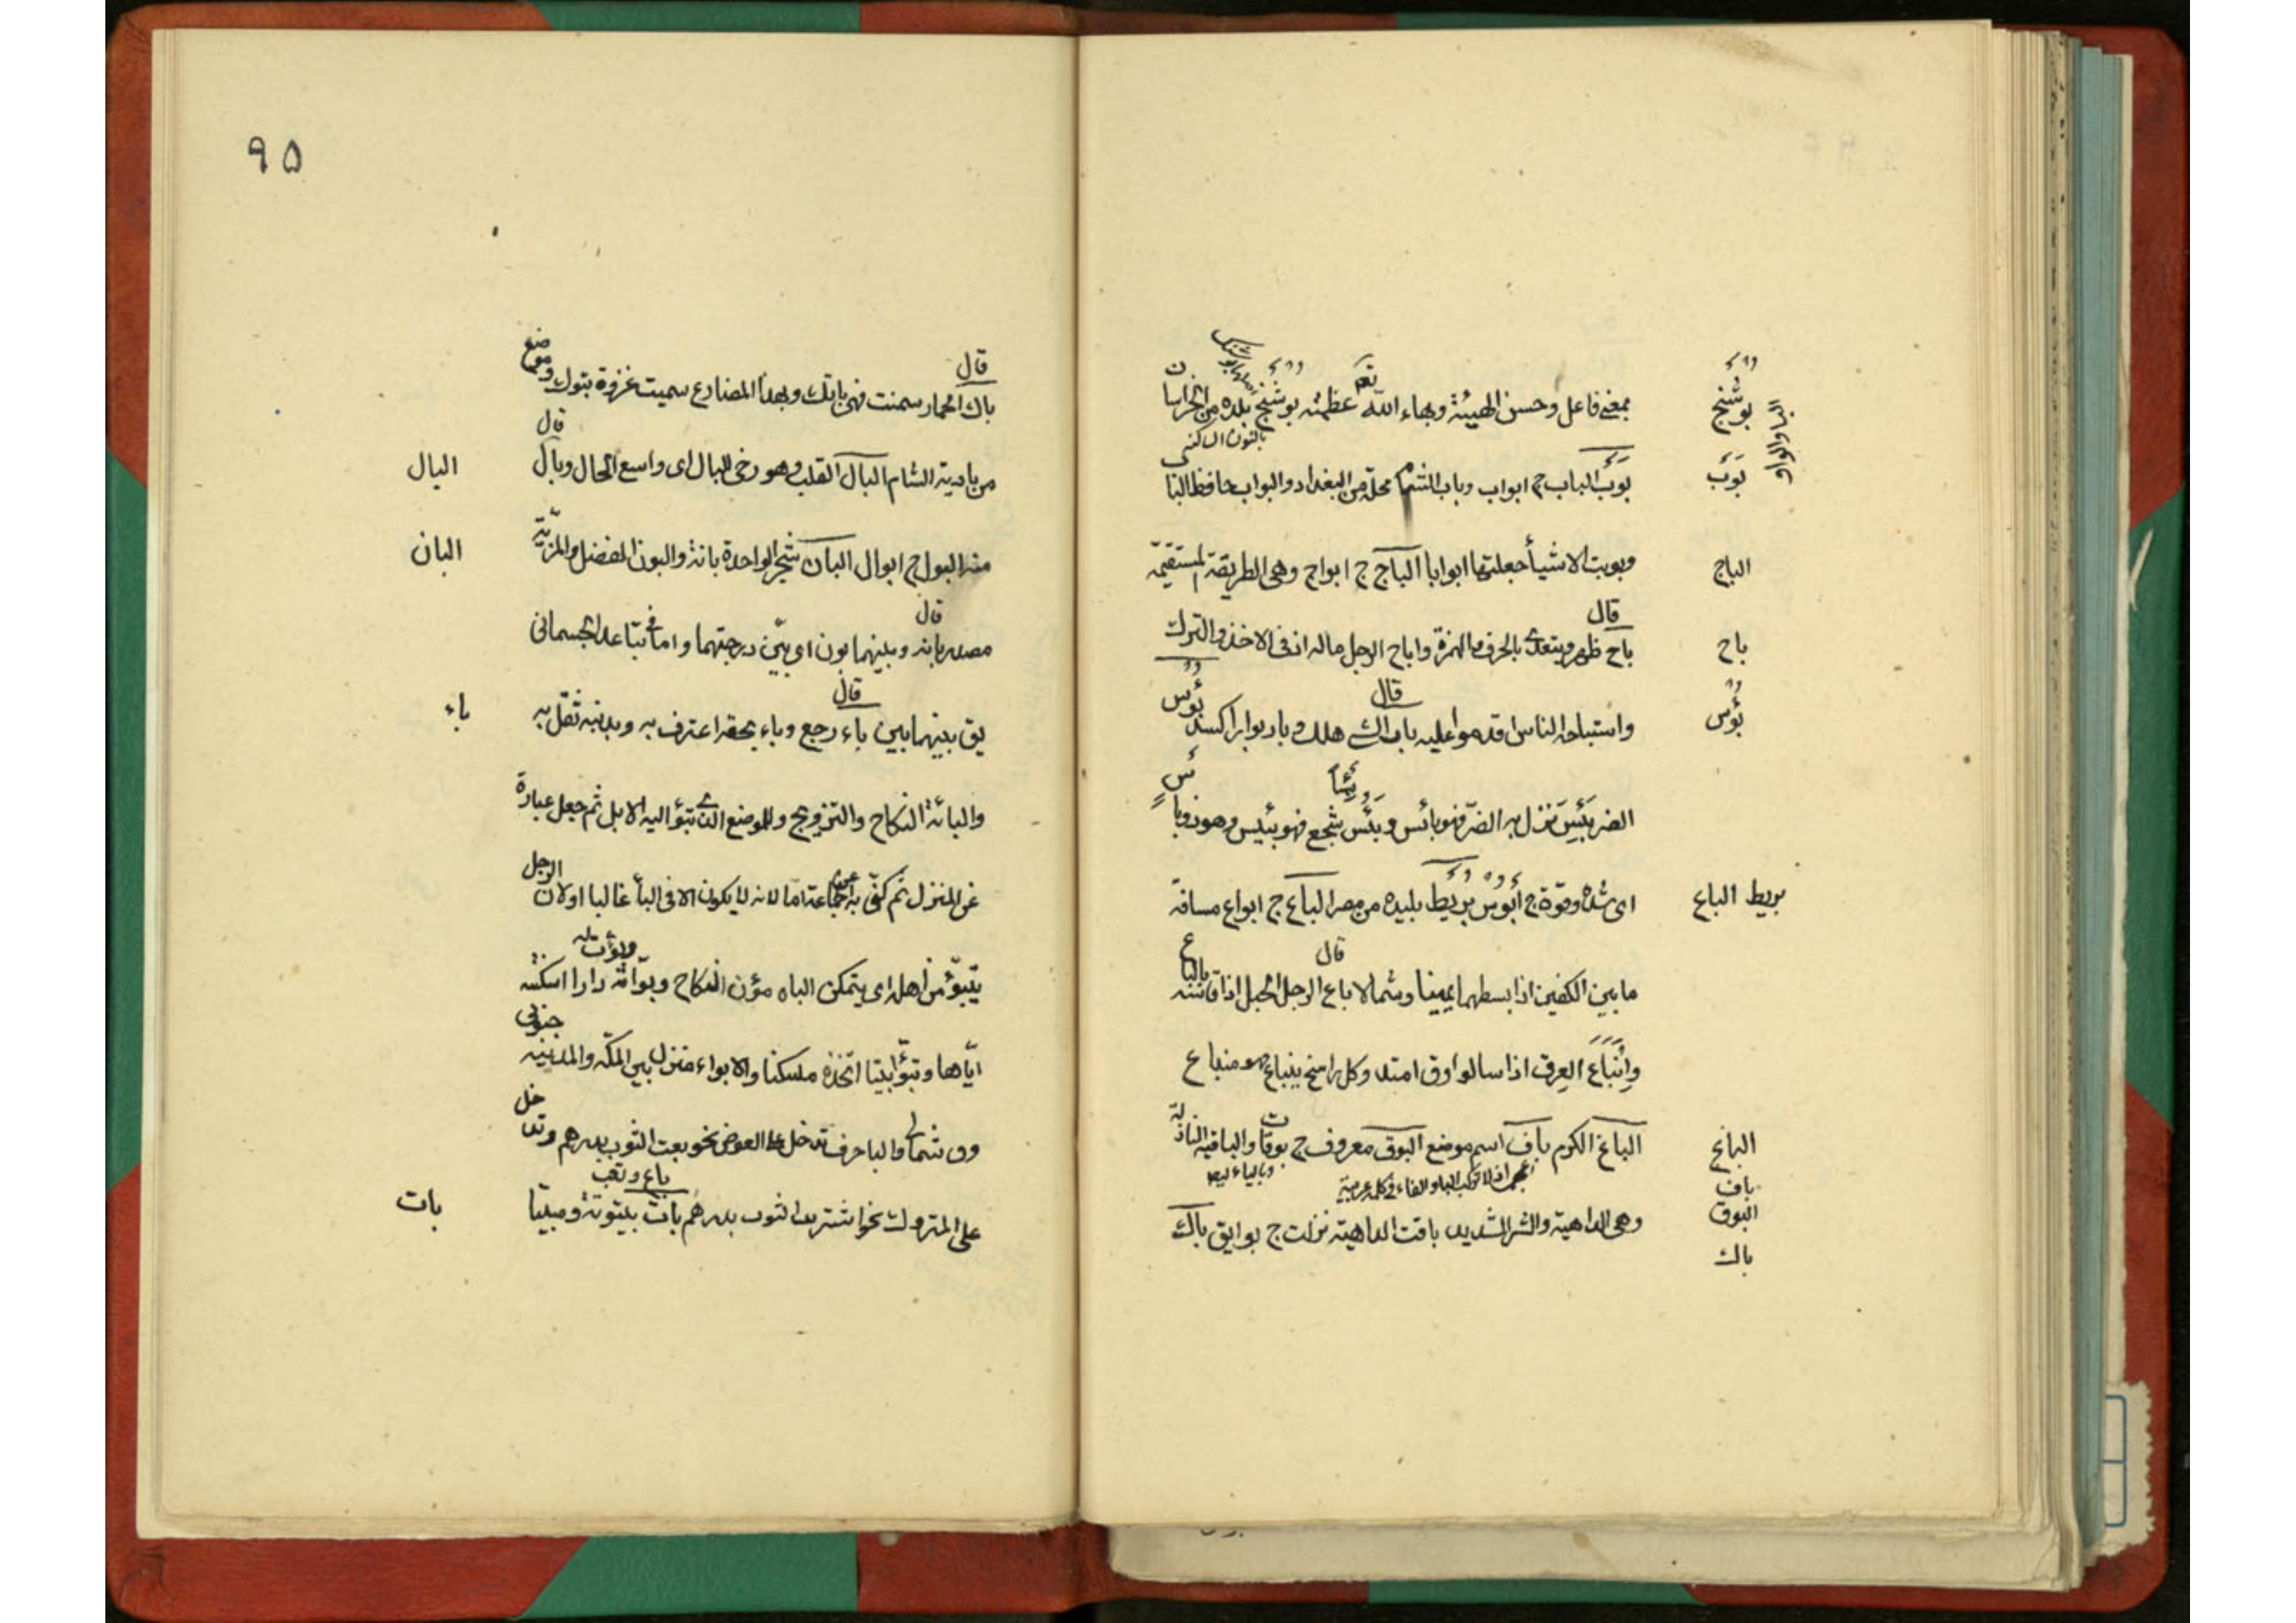 بوشنج
بمعنى فاعل وحسن الهيئة وبهاء الله تعـ عظمته بوشنج بلده من الخراسان
بالنون الساكنه
بوب
بوب الباب ج ابواب وباب الشام محلة من البغداد والبواب حافظ البا
الباج
وبوبت الاشيأ جعلتها ابوابا الباج ج ابواج وهى الطريقة المستقيمة
قال
باح
باح ظهر ويتعدى بالحرف والهمزة واباح الرجل ماله اذن فى الاخذ والترك
قال
بؤس
واستباحه الناس اقدموا عليه باد الشى هلك وبار بوارا كسد بؤس
الضر بئس نزل به الضر فهو بائس وبئس شجع فهو بئيس وهو ذو باس
بريط الباع
اى شده وقوة ج أبؤس بريط بليده من مصر الباع ج ابواع مسافة
قال
ما بين الكفين اذا بسطهما يمينا وشمالا باع الرجل الحبل اذا قاسه بالباع
وانباع العرق اذا سال وق امتد وكل راسخ ينباع منباع
الباغ
الباغ الكرم باف اسم موضع البوق معروف ج بوقات والباقيه النازلة
باف
البوق
وهى الداهية والشر الشديد باقت الداهية نزلت ج بوايق باك
باك
٩٥
قال
باك الحمار سمنت فهى بائك وبهذا المضارع سميت غزوة بتوك وموضع
قال
البال
من بادية الشام البال القلب وهو رخى البال اى واسع الحال وبال
البان
منه البول ج ابوال البان شجر الواحدة بانة والبون الفضل والمزية
قال
مصدر بانه وبينهما بون اى بين درجتهما واما فى تباعد الجسمانى
قال
باء
يق بينهما بين باء رجع وباء بحقه اعترف به وبذنبه ثقل به
والبائة النكاح والتزويج والموضع الذى تبوأ اليه الابل ثم جعل عبارة
عن المنزل ثم كنى به عن الجماعة اما لانه لا يكون الا فى البأ غالبا او لان الرجل
يتبوّأ من اهله اى يتمكن الباه مؤن النكاح وبوأته دارا اسكنته
اياها وتبوّأ بيتا اتخذه مسكنا والابواء منزل بين المكة والمدينة
وق شمالى والبا حرف تدخل على العوض نحو بعت الثوب بدرهم وتدخل
باع وتعب
بات
على المتروك نحو اشتريت الثوب بدرهم بات بيتوتة ومبيتا